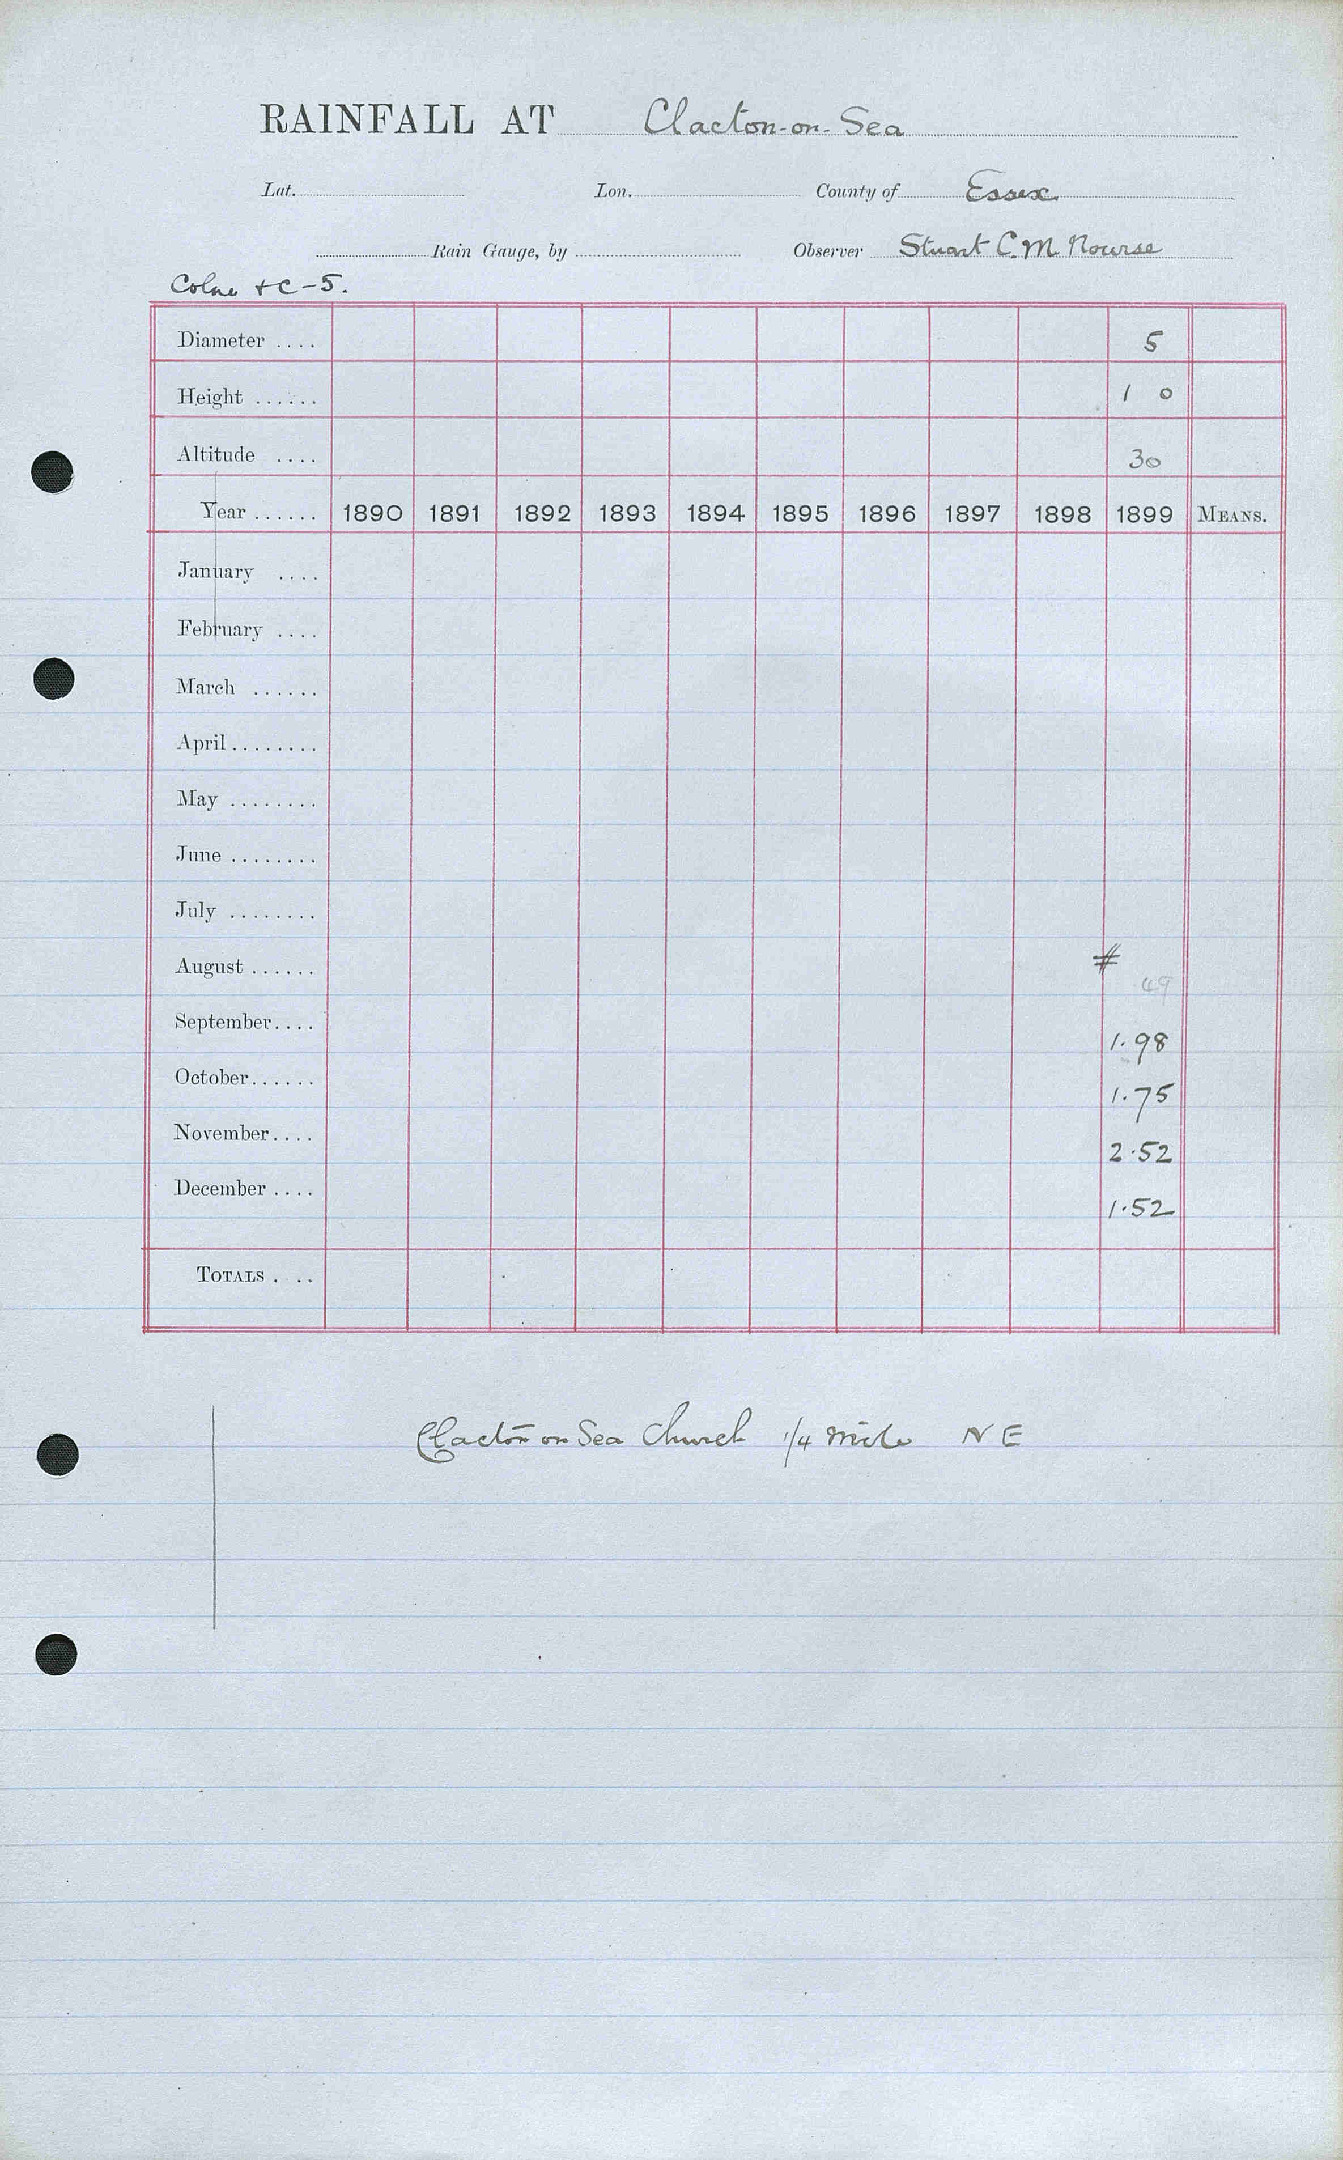 RAINFALL AT Clacton-on-Sea
Lat. Lon. County of Essex
Rain Gauge, by Observer Stuart C. M. Nourse
Colne & C-5.
Diameter .... 5
Height ...... 1 0
Altitude .... 30
Year ...... 1890 1891 1892 1893 1894 1895 1896 1897 1898 1899 MEANS.
January ....
February ....
March ......
April ........
May ........
June ........
July ........
August ...... # .49
September.... 1.98
October...... 1.75
November.... 2.52
December .... 1.52
TOTALS . ..
Clacton on Sea Church 1/4 mile N E